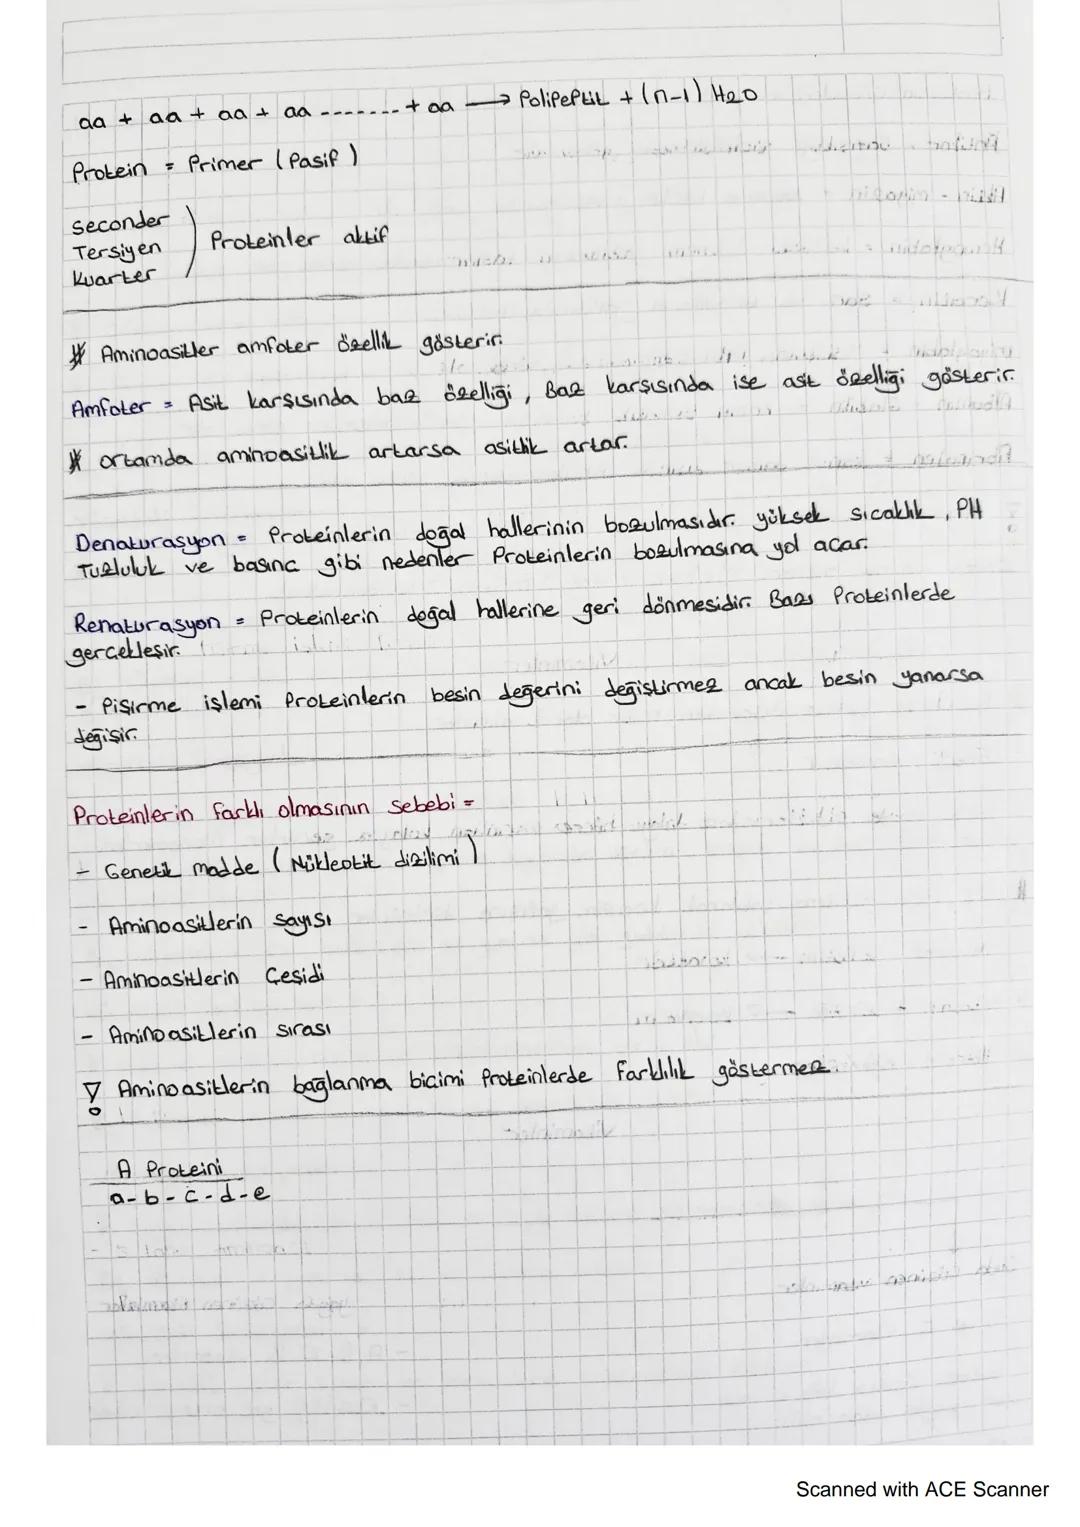 aa + aa + aa + aa .......+ aa → Polipeptit + (n-1) H2O
Protein = Primer (Pasif)
seconder
Tersiyen
Kuarter
Proteinler aktif
* Aminoasitler amfoter özellik gösterir.
Amfoter = Asit karşısında baz özelliği, Baz karşısında ise asit özelliği gösterir.
* ortamda aminoasitlik artarsa asitlik artar.
Denaturasyon = Proteinlerin doğal hallerinin bozulmasıdır. yüksek sıcaklık, PH
Tuzluluk ve basınc gibi nedenler Proteinlerin bozulmasına yol acar.
Renaturasyon = Proteinlerin doğal hallerine geri dönmesidir. Bazı Proteinlerde
gercekleşir.
- Pişirme işlemi Proteinlerin besin değerini değiştirmez ancak besin yanarsa
değişir.
Proteinlerin farklı olmasının sebebi =
- Genetik madde (Nükleotit dizilimi)
- Aminoasitlerin sayısı
- Aminoasitlerin Çeşidi
- Aminoasitlerin sırası
! Aminoasitlerin bağlanma bicimi Proteinlerde farklılık göstermez.
A Proteini
a-b-c-d-e
Scanned with ACE Scanner